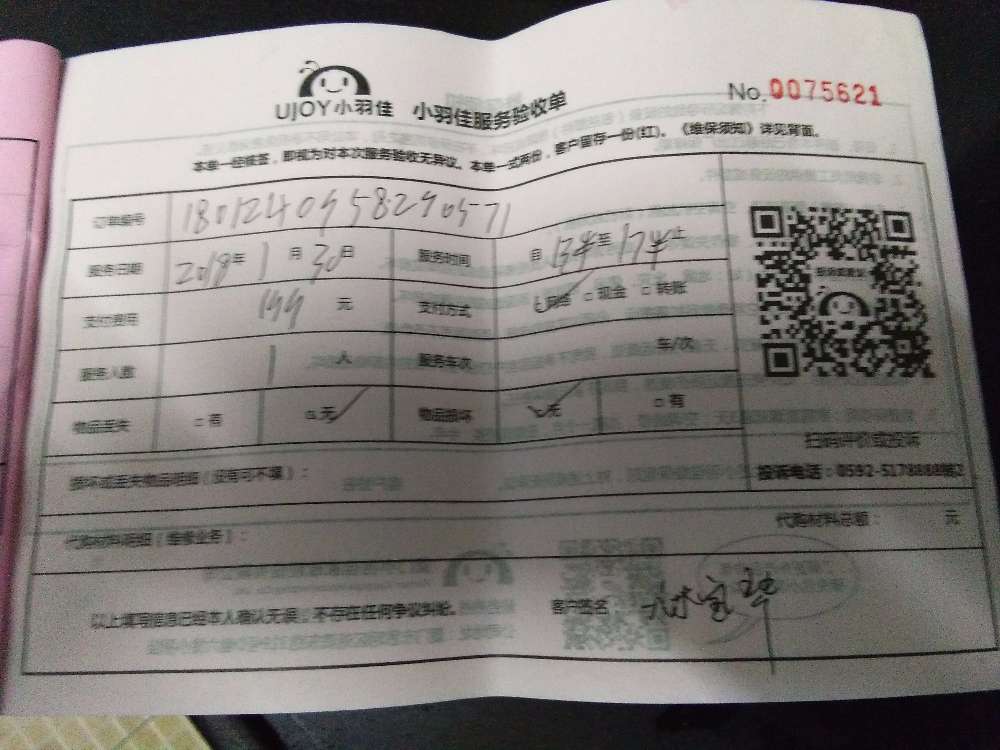 UJOY小羽佳 小羽佳服务验收单
No.0075621
本单一经签签，即视为对本次服务验收无异议。本单一式两份，客户留存一份(红)。《维保须知》详见背面。
订单编号 1801240958290571
服务日期 2018年1月30日 服务时间 自13半至17半止
支付费用 199元 支付方式 网络 □现金 □转账
服务人数 1人 服务车次 车/次
物品丢失 □有 □无 物品损坏 无 □有
损坏或丢失物品明细（没有可不填）：
扫码评价或投诉
投诉电话：0592-5178888转2
代购材料明细（维修业务）：
代购材料总额： 元
以上填写信息已经本人确认无误，不存在任何争议纠纷。
客户签名：林宝